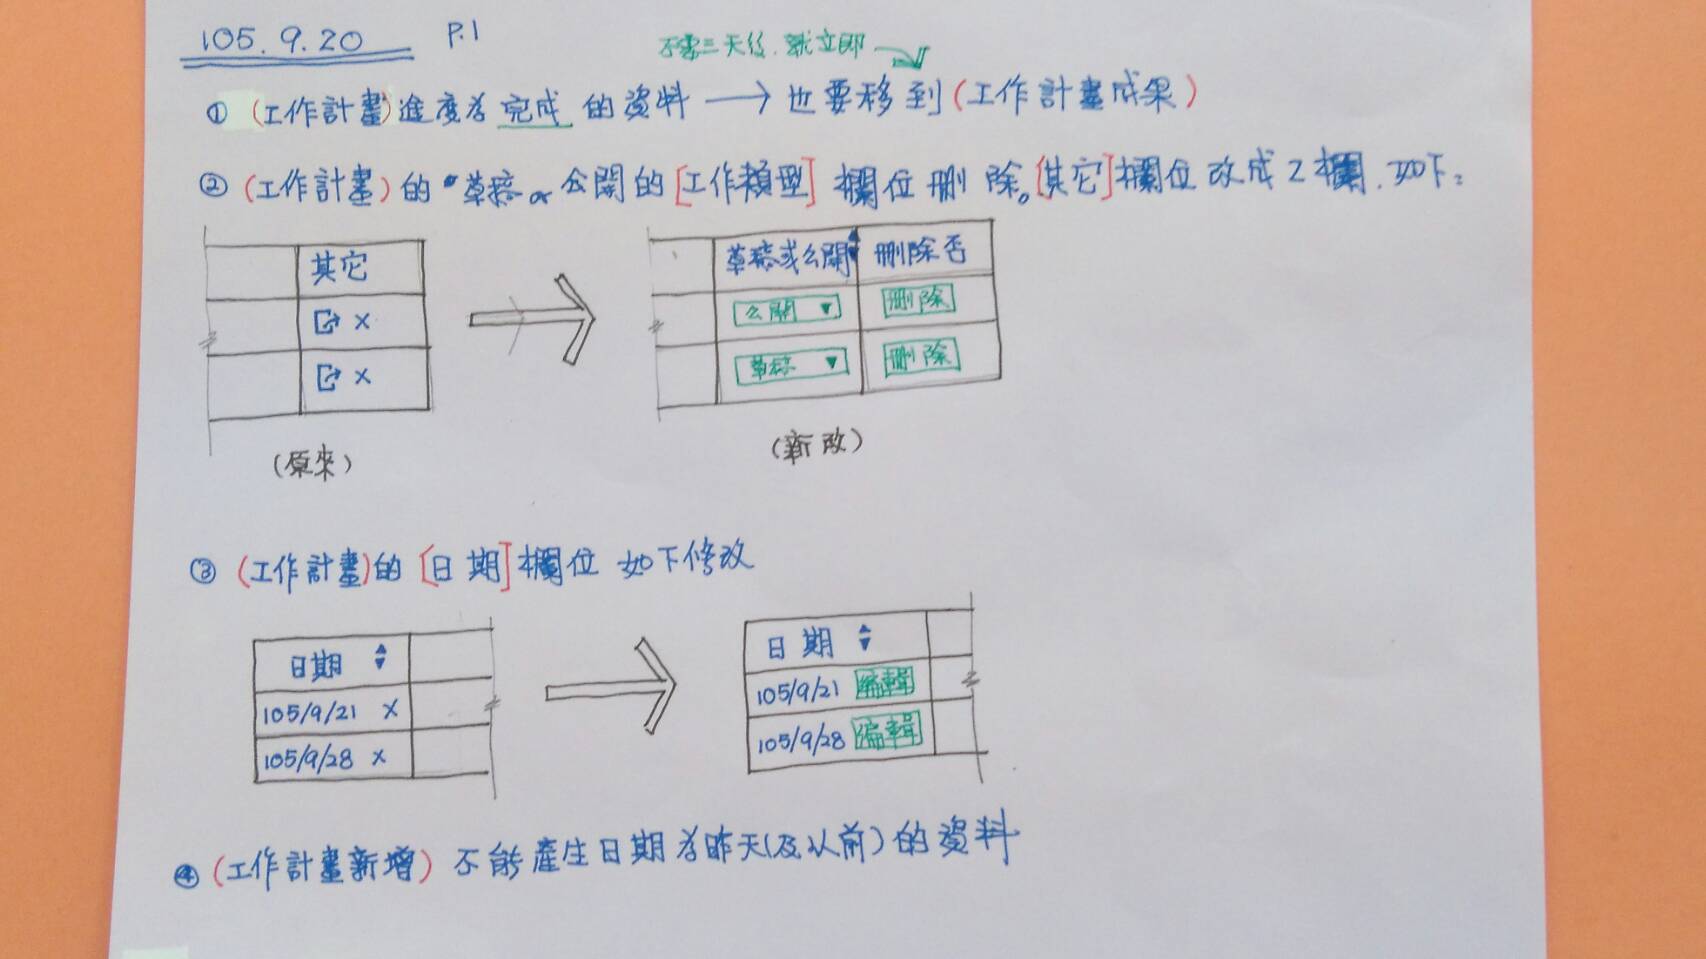 105.9.20 P.1
不需三天後.就立即
① (工作計畫)進度為完成的資料 → 也要移到(工作計畫成果)
② (工作計畫)的 草稿or公開的[工作類型]欄位刪除。[其它]欄位改成2欄.如下:
其它
x
x
(原來)
草稿或公開 刪除否
公開 ▼ 刪除
草稿 ▼ 刪除
(新改)
③ (工作計畫)的[日期]欄位 如下修改
日期
105/9/21 x
105/9/28 x
日期
105/9/21 編輯
105/9/28 編輯
④ (工作計畫新增) 不能產生日期為昨天(及以前)的資料